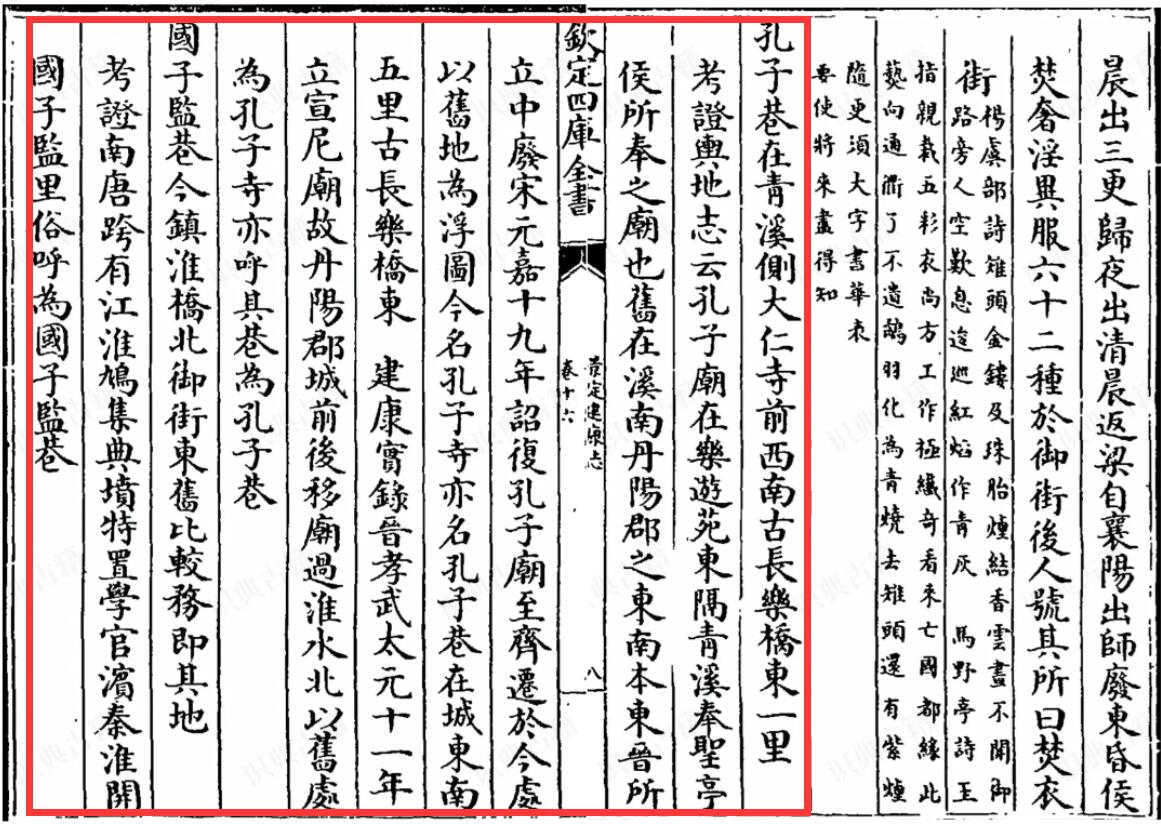 晨出三更歸夜出清晨返梁自襄陽出師廢東昏侯
焚奢淫異服六十二種於御街後人號其所曰焚衣
街楊虞部詩雉頭金鏤及珠胎煙結香雲畫不開御
路旁人空歎息逡巡紅焰作青灰 馬野亭詩王
指親裁五彩衣尚方工作極纖奇看來亡國都緣此
藝向通衢了不遺鷸羽化為青燒去雉頭還有紫煙
隨更須大字書華表
要使將來畫得知
孔子巷在青溪側大仁寺前西南古長樂橋東一里
考證輿地志云孔子廟在樂遊苑東隔青溪奉聖亭
侯所奉之廟也舊在溪南丹陽郡之東南本東晉所
欽定四庫全書
景定建康志
卷十六
八
立中廢宋元嘉十九年詔復孔子廟至齊遷於今處
以舊地為浮圖今名孔子寺亦名孔子巷在城東南
五里古長樂橋東 建康實錄晉孝武太元十一年
立宣尼廟故丹陽郡城前後移廟過淮水北以舊處
為孔子寺亦呼其巷為孔子巷
國子監巷今鎮淮橋北御街東舊比較務即其地
考證南唐跨有江淮鳩集典墳特置學官濱秦淮開
國子監里俗呼為國子監巷